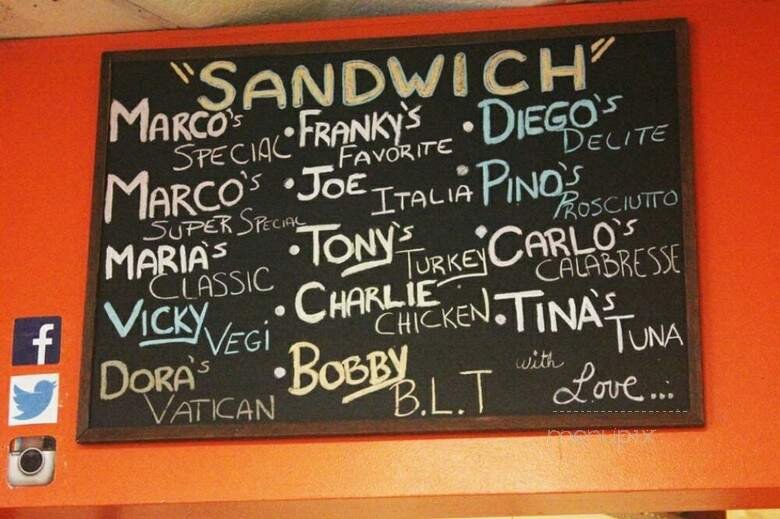 "SANDWICH"
MARCO's
SPECIAL
MARCO's
SUPER SPECIAL
MARIA's
CLASSIC
VICKY
VEGI
DORA's
VATICAN
• FRANKY's
FAVORITE
• JOE
ITALIA
• TONY's
TURKEY
• CHARLIE
CHICKEN
• BOBBY
B.L.T
• DIEGO's
DELITE
• PINO's
PROSCIUTTO
• CARLO's
CALABRESSE
• TINA's
TUNA
with
Love...
menupix
f